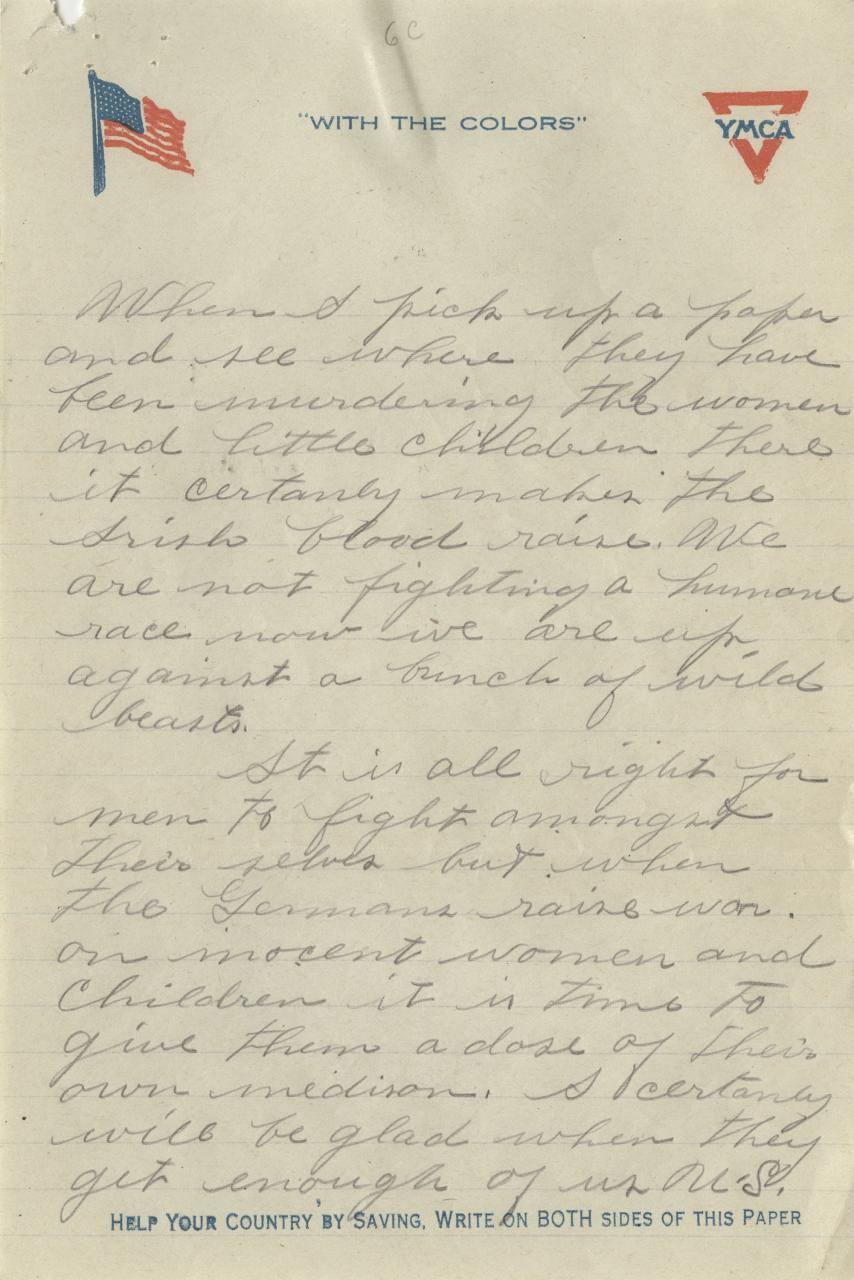 6C
"WITH THE COLORS"
YMCA
When I pick up a paper
and see where they have
been murdering the women
and little children there
it certanly makes the
Irish blood raise. We
are not fighting a humane
race now we are up
against a bunch of wild
beasts.
It is all right for
men to fight amongst
their selves but when
the Germans raise war.
on inocent women and
children it is time to
give them a dose of their
own medison. I certanly
will be glad when they
get enough of us U.S.
HELP YOUR COUNTRY BY SAVING, WRITE ON BOTH SIDES OF THIS PAPER